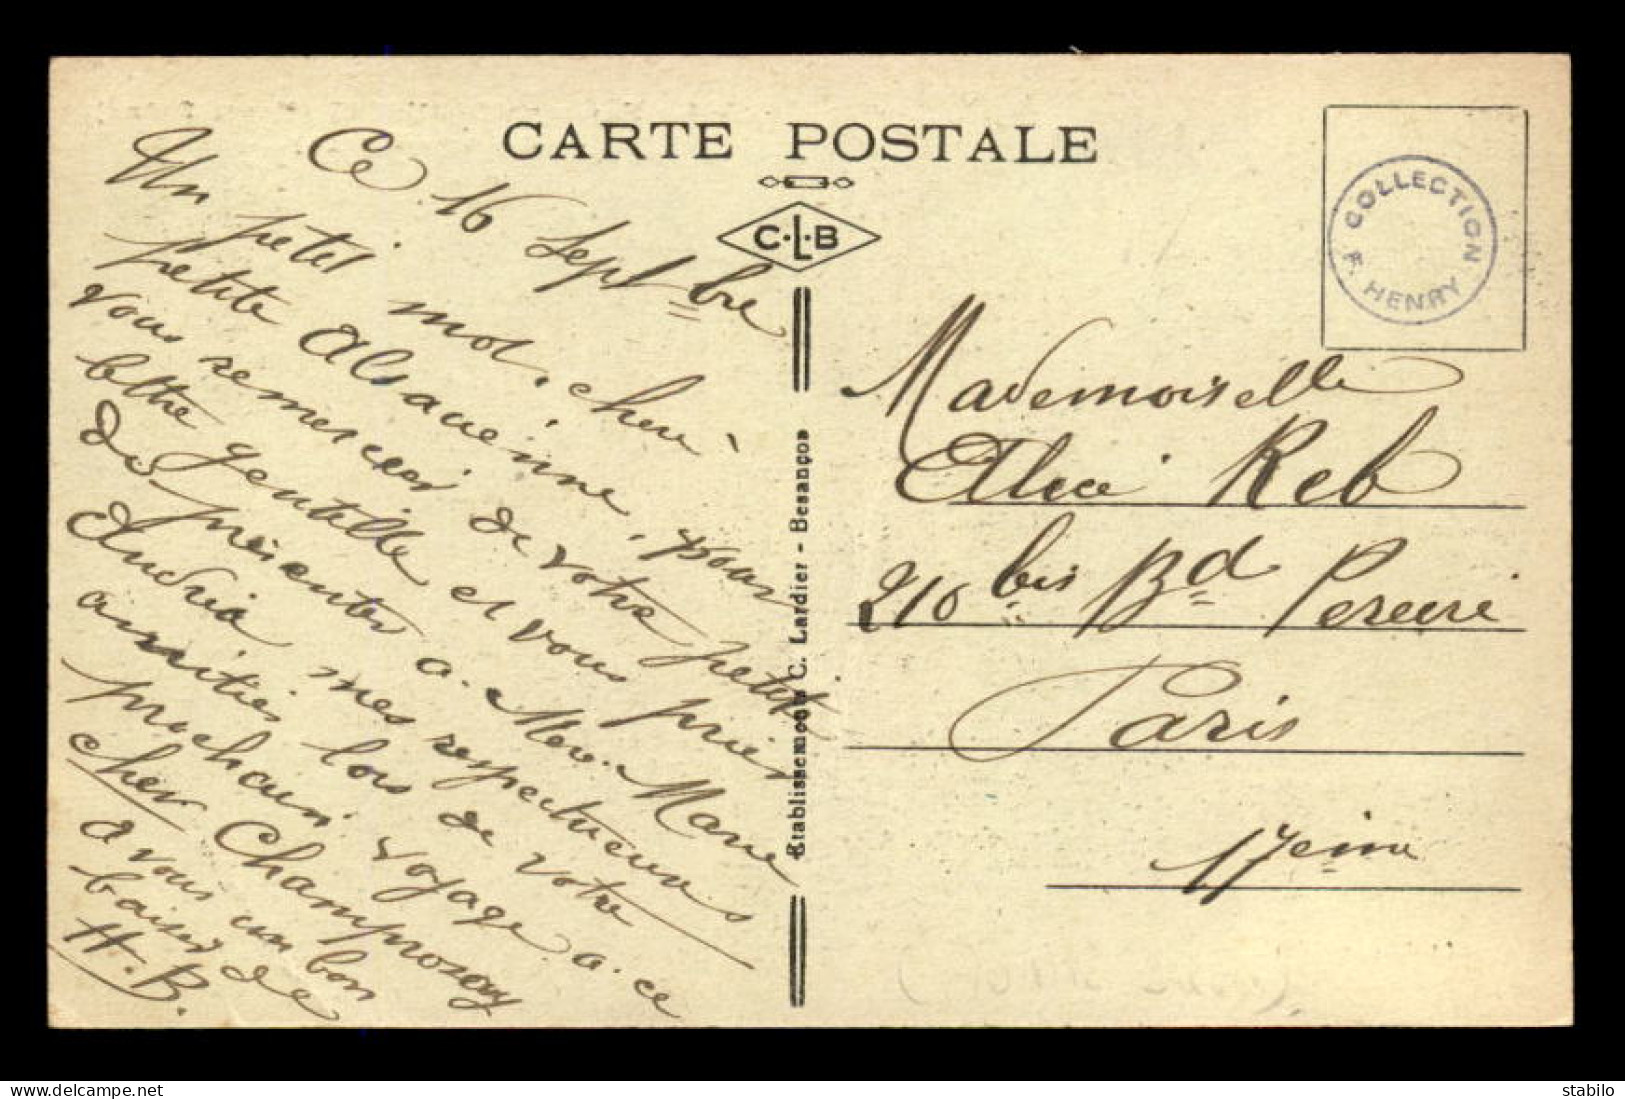 CARTE POSTALE
C.L.B
COLLECTION
F. HENRY
Ce 16 Septbre
Un petit mot, cherè
petite Alsacienne, pour
vous remercier de votre petite
lettre gentille et vous prier
de présenter a. Mère. Marie
Andréa mes respectueuses
amitiés lors de votre
prochain voyage a. ce
cher Champrosay
a vous un bon
baiser de
H. B.
Etablissements C. Lardier - Besançon
Mademoiselle
Alice Reb
210 bis Bd Pereire
Paris
17eime
www.delcampe.net
stabilo